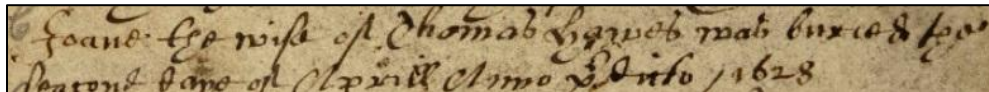 Joane the wife of Thomas Hawes was buried the
second daye of Aprill Anno p̄dicto / 1628